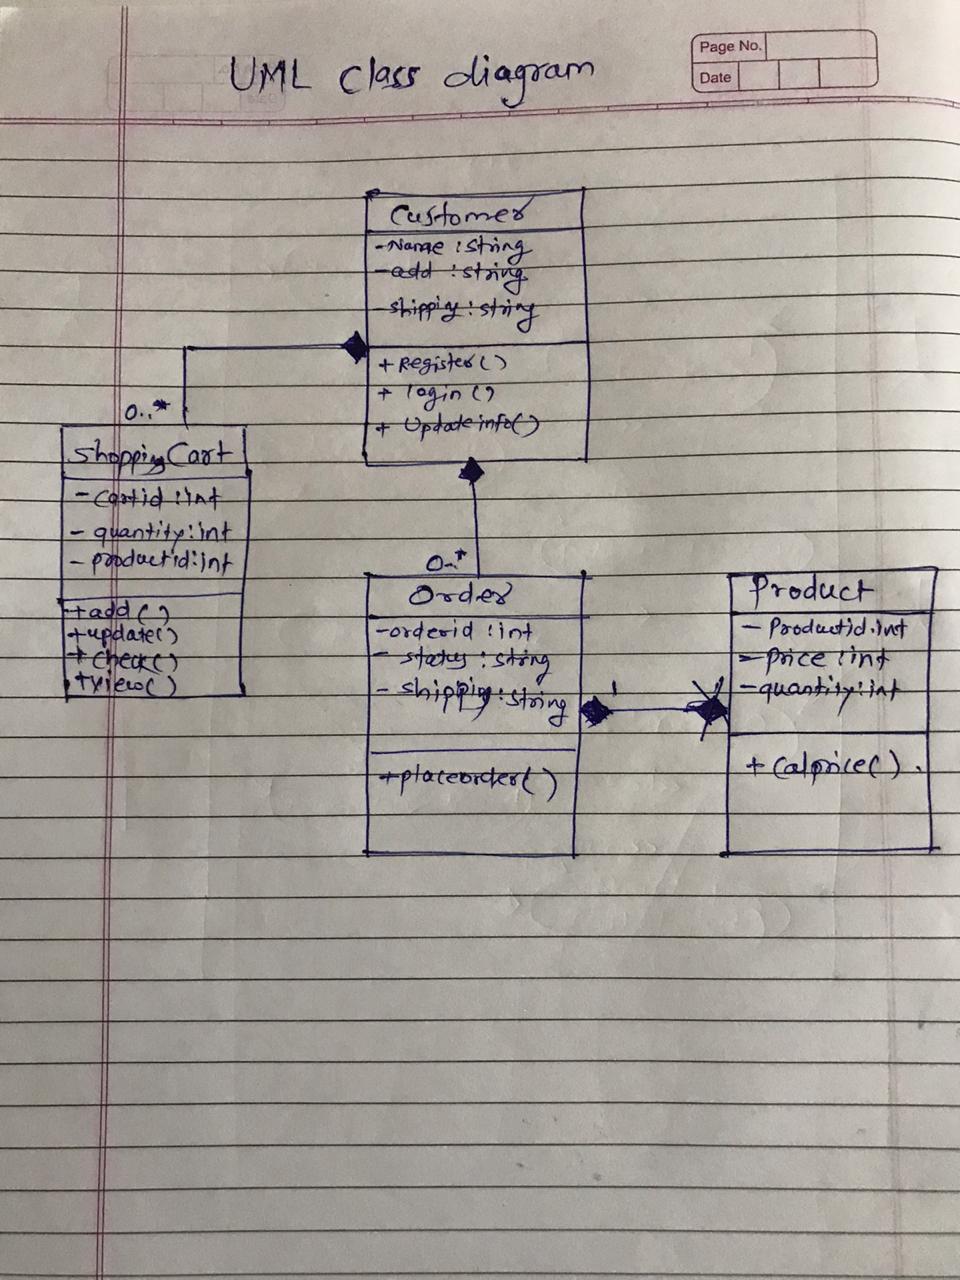 UML Class diagram
Page No.
Date
Customer
-Name : string
-add : string
-shipping : string
+ Register()
+ login ()
+ Updateinfo()
0..*
ShoppingCart
- Cartid : int
- quantity : int
- productid : int
+add()
+update()
+ check()
+view()
0..*
Order
-orderid : int
- status : string
- shipping : string
+placeorder()
1
Product
- Productid : int
- Price : int
-quantity : int
+ Calprice() .